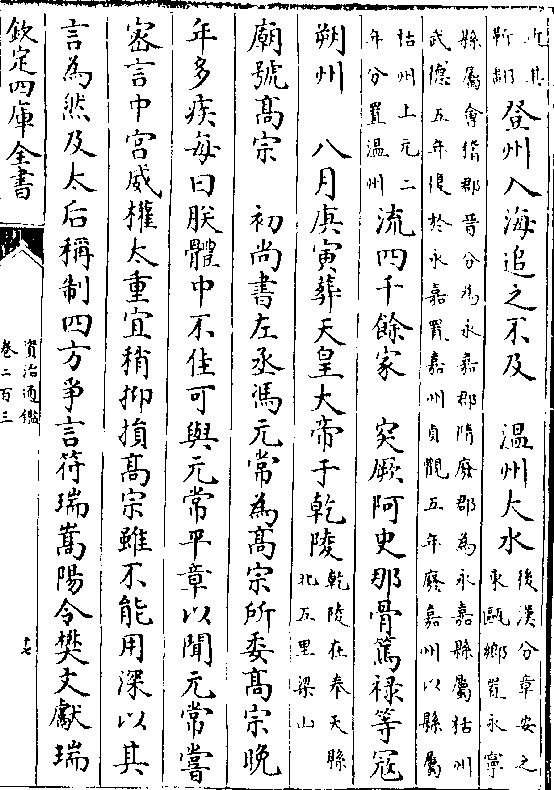 登州入海追之不及　溫州大水
後漢分章安之
東甌鄉置永寧
縣屬會稽郡晉分為永嘉郡隋廢郡為永嘉縣屬括州
武德五年復於永嘉置嘉州貞觀五年廢嘉州以縣屬
括州上元二
年分置溫州
流四千餘家　突厥阿史那骨篤祿等冦
朔州　八月庚寅葬天皇大帝于乾陵
乾陵在奉天縣
北五里梁山
廟號髙宗　初尚書左丞馮元常為髙宗所委髙宗晚
年多疾每曰朕體中不佳可與元常平章以聞元常嘗
密言中宫威權太重宜稍抑損髙宗雖不能用深以其
言為然及太后稱制四方爭言符瑞嵩陽令樊文獻瑞
欽定四庫全書
資治通鑑
卷二百三
十七